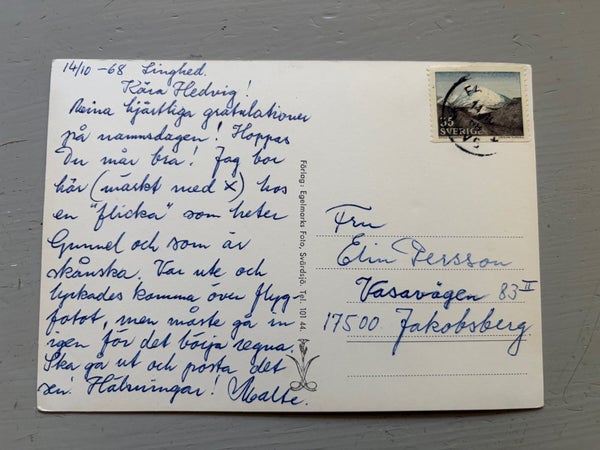 14/10 -68 Linghed.
Kära Hedvig!
Mina hjärtliga gratulationer
på namnsdagen! Hoppas
Du mår bra! Jag bor
här (märkt med X) hos
en "flicka" som heter
Gunnel och som är
skånska. Var ute och
lyckades komma över flyg-
fotot, men måste gå in
igen för det börja regna.
Ska gå ut och posta det
sen. Hälsningar! Malte.
Förlag: Egelmarks Foto, Svärdsjö. Tel. 101 44.
55
SVERIGE
Fru
Elin Persson
Vasavägen 83 II
17500 Jakobsberg